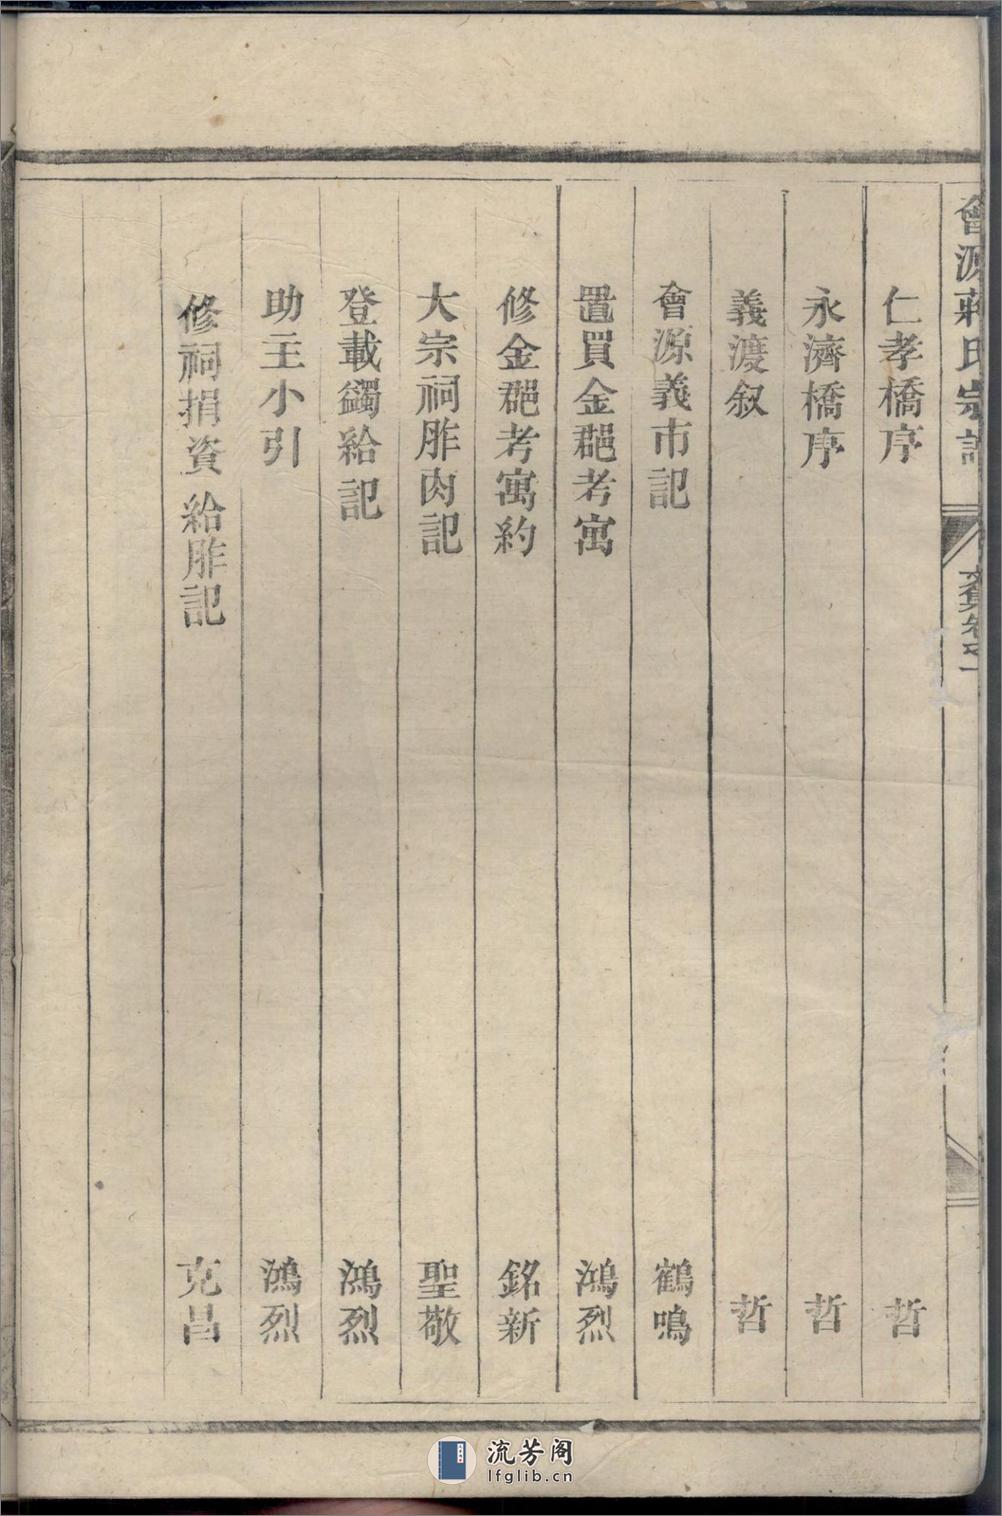 會源蔣氏宗譜
仁孝橋序 哲
永濟橋序 哲
義渡叙 哲
會源義市記 鶴鳴
置買金郡考寓 鴻烈
修金郡考寓約 銘新
大宗祠胙肉記 聖敬
登載蠲給記 鴻烈
助主小引 鴻烈
修祠捐資給胙記 克昌
流芳阁
lfglib.cn